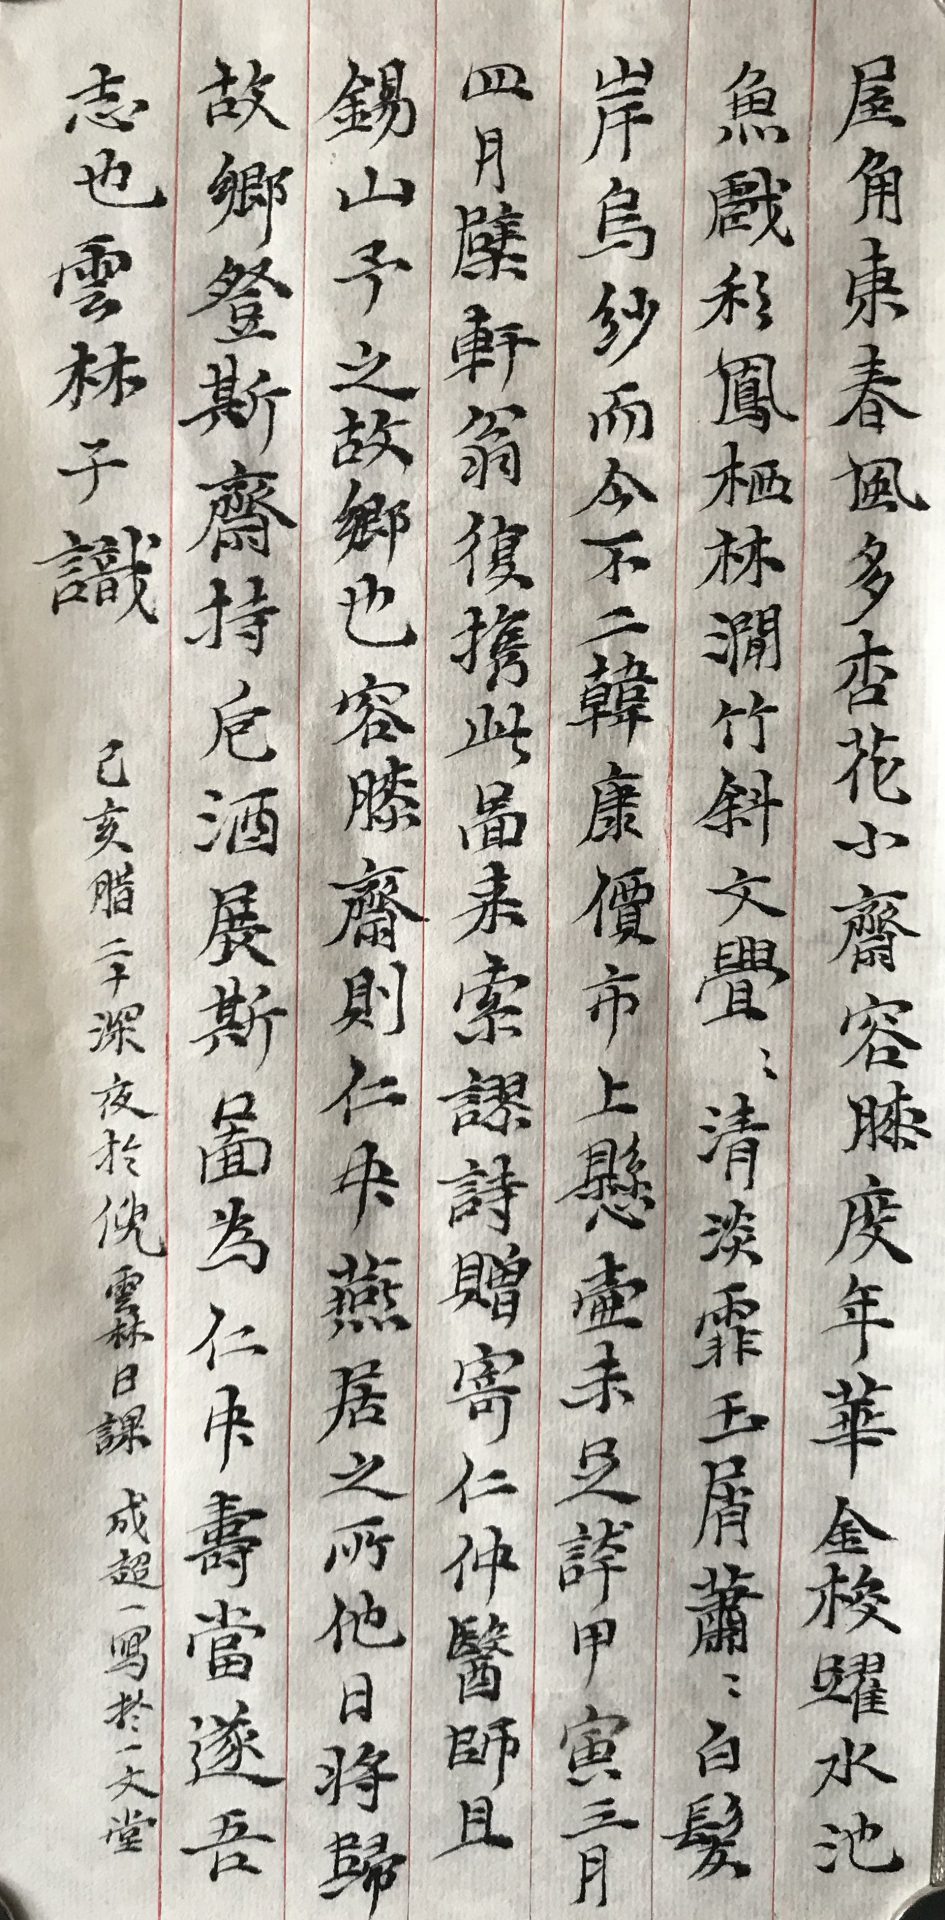 屋角東春風多杏花小齋容膝度年華金梭曜水池
魚戲彩鳳栖林澗竹斜文疊〻清淡霏玉屑蕭〻白髮
岸烏紗而今不二韓康價市上懸壺未足誇甲寅三月
四月檗軒翁復攜此啚来索謬詩贈寄仁仲醫師且
錫山予之故鄉也容膝齋則仁仲燕居之所他日將歸
故鄉登斯齋持卮酒展斯啚為仁仲壽當遂吾
志也雲林子識
己亥腊二十深夜於倪雲林日課 成超一寫於一文堂